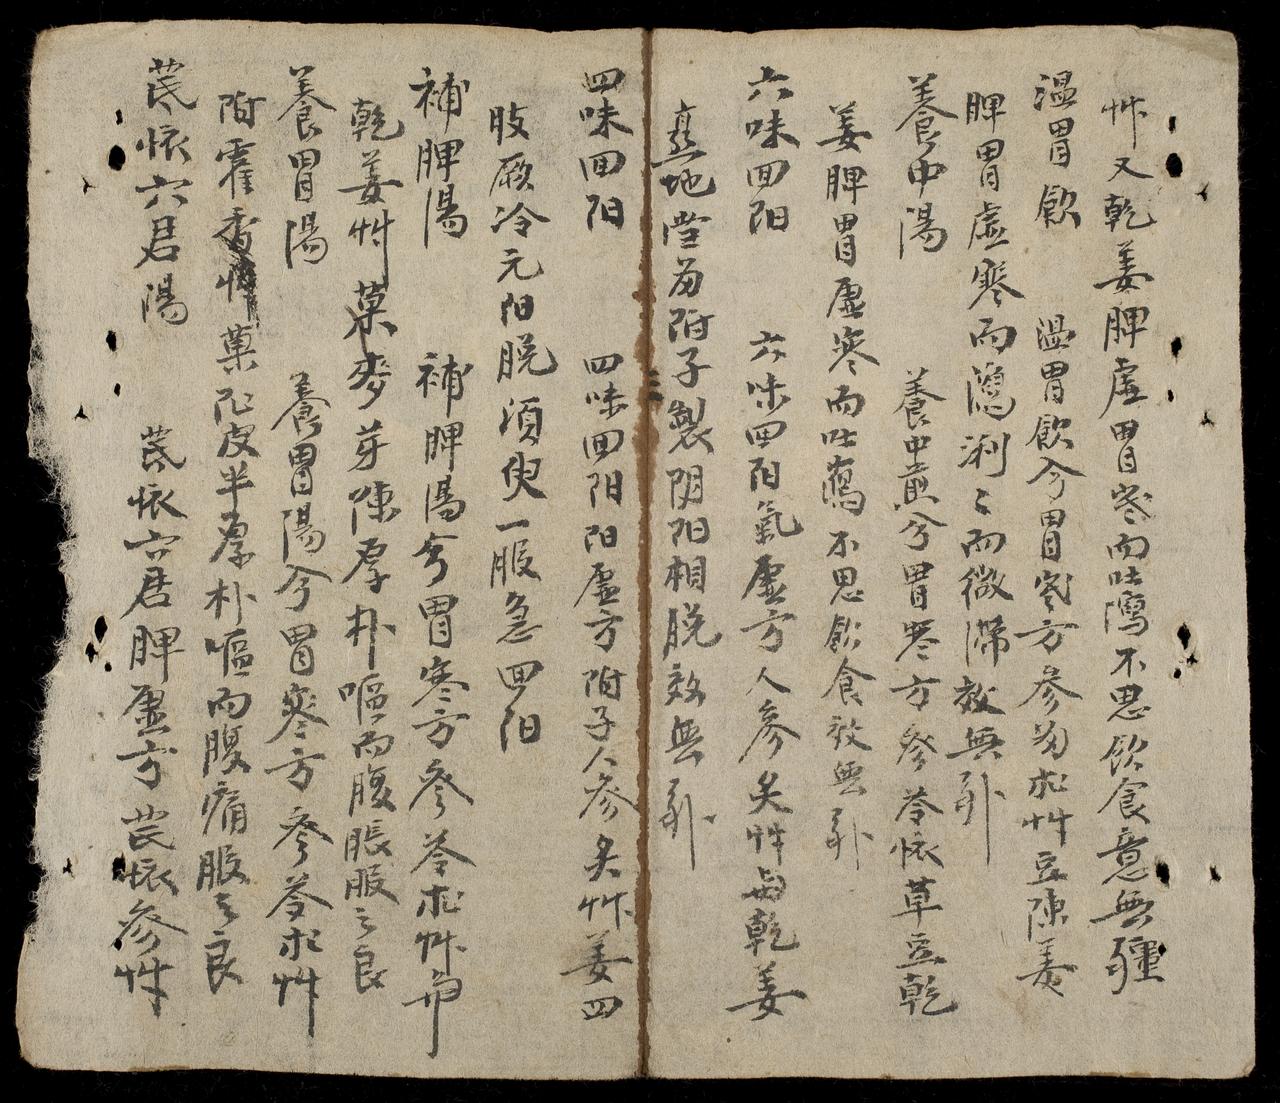 艸又乾姜脾虚胃寒而吐瀉不思飲食意無疆
温胃飲 温胃飲兮胃寒方參歸朮艸豆陳姜
脾胃虚寒而瀉利〻而微滯效無弙
養中湯 養中煎兮胃寒方參苓懷草豆乾
姜脾胃虚寒而吐瀉不思飲食效無弙
六味回阳 六味回阳氣虚方人參炙艸歸乾姜
熟地當歸附子製阴阳相脱效無弙
四味回阳 四味回阳阳虚方附子人參炙艸姜四
肢厥冷元阳脱須臾一服急回阳
補脾湯 補脾湯兮胃寒方參苓朮艸
乾姜艸菓麥芽陳厚朴嘔而腹脹服之良
養胃湯 養胃湯兮胃寒方參苓朮艸
附霍香菓陀皮半厚朴嘔而腹痛服之良
芪懷六君湯 芪懷六君脾虚方芪懷參艸